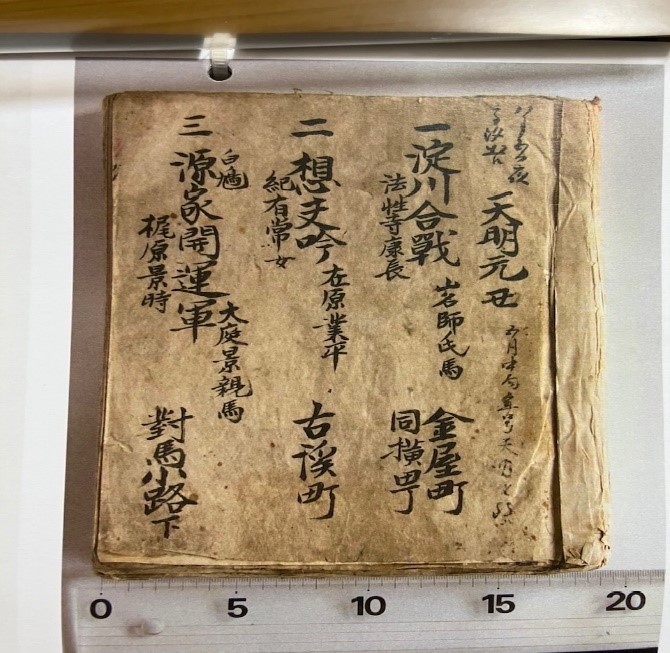 天明元丑
一 淀川合戰 山名師氏馬 金屋町
法性寺康長 同横町
二 想夫吟 在原業平 古溪町
紀有常女
三 源家開運軍 大庭景親馬 對馬小路下
白鳩
梶原景時
0 5 10 15 20